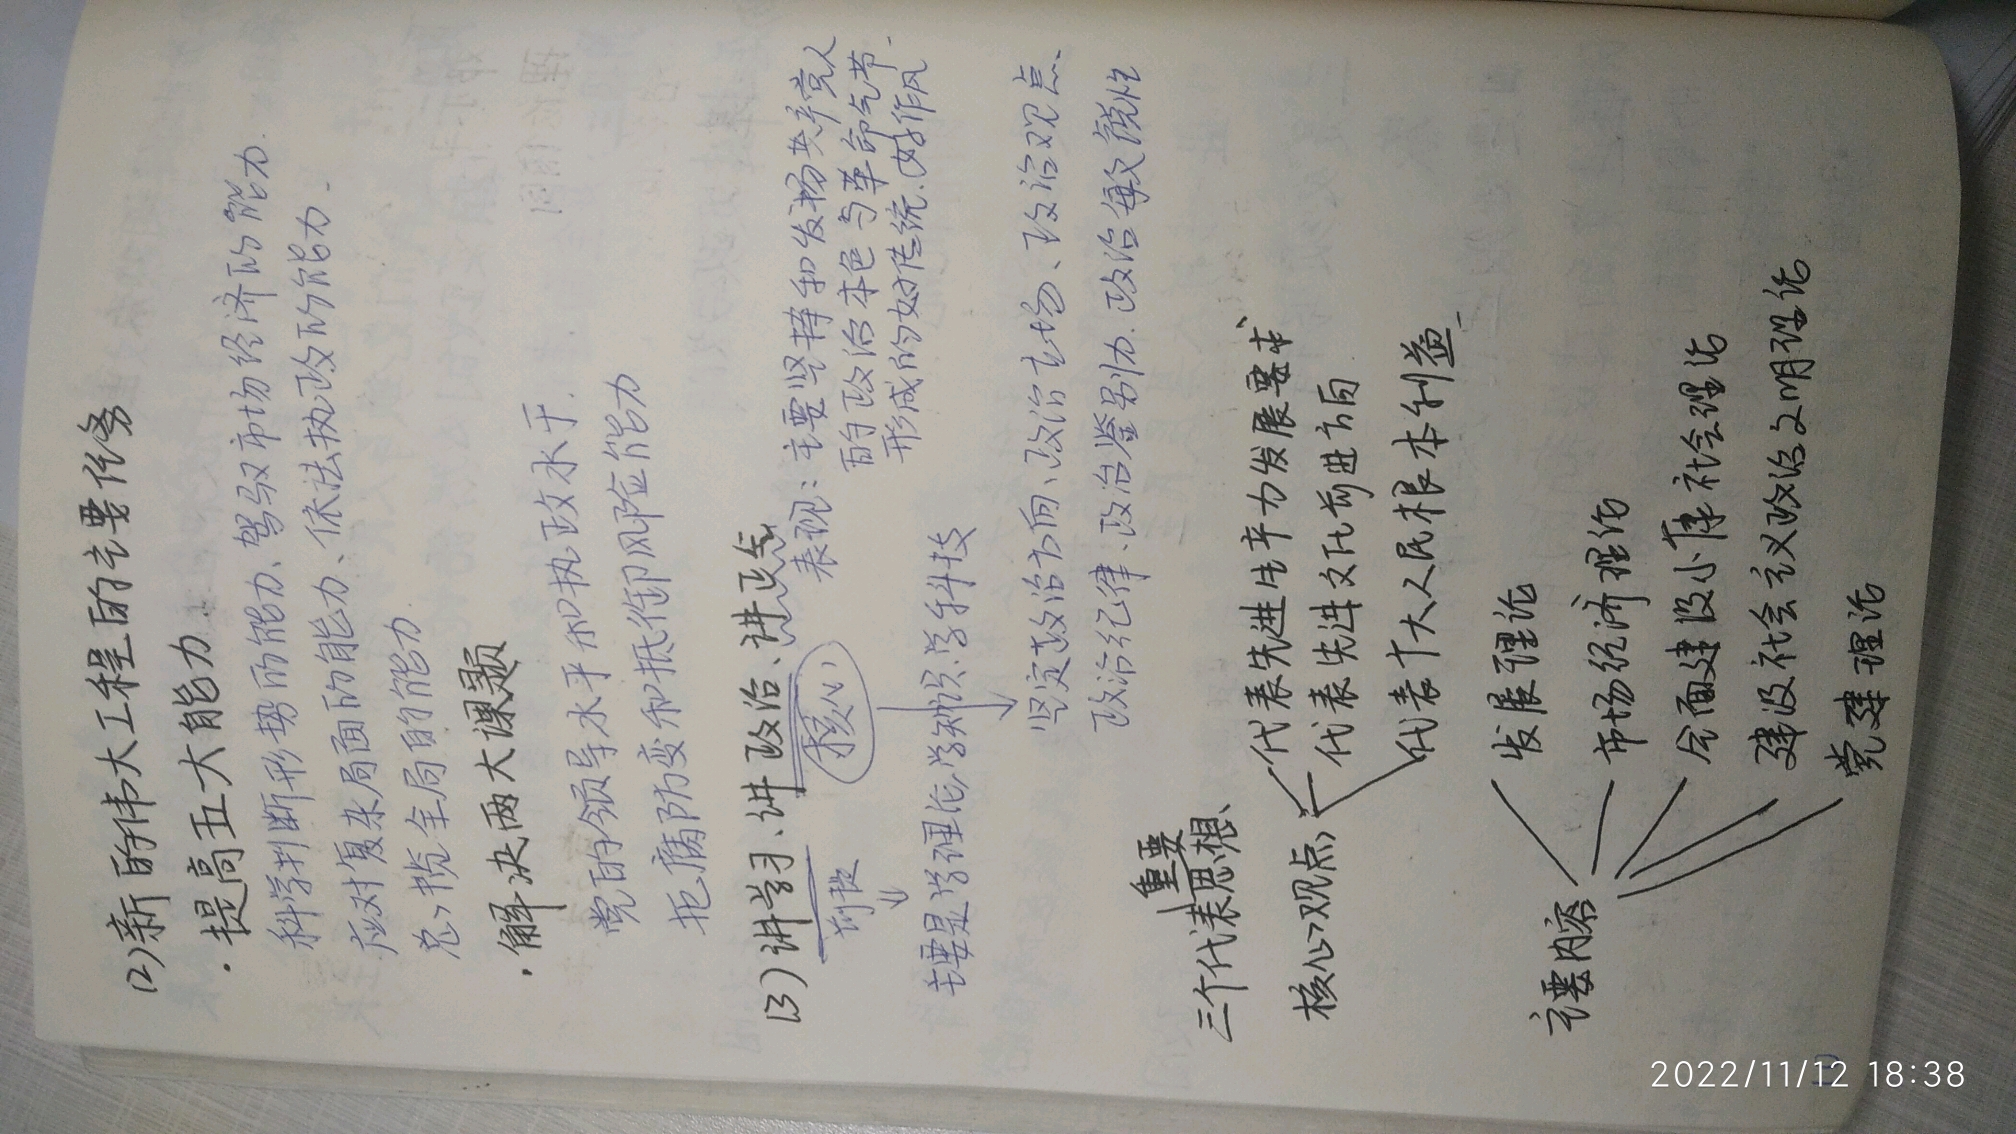 (2)新的伟大工程的主要任务
·提高五大能力.
科学判断形势的能力、驾驭市场经济的能力.
应对复杂局面的能力、依法执政的能力.
总揽全局的能力
·解决两大课题
党的领导水平和执政水平.
拒腐防变和抵御风险能力
(3)讲学习、讲政治、讲正气
前提
核心
表现:主要坚持和发扬共产党人
的政治本色与革命气节.
形成的好传统.好作风
主要是学理论学知识学科技
坚定政治方向、政治立场、政治观点、
政治纪律、政治鉴别力.政治敏锐性
重要
三个代表思想、
核心观点
代表先进生产力发展要求、
代表先进文化前进方向
代表广大人民根本利益
主要内容
发展理论
市场经济理论
全面建设小康社会理论
建设社会主义政治文明理论
党建理论
2022/11/12 18:38